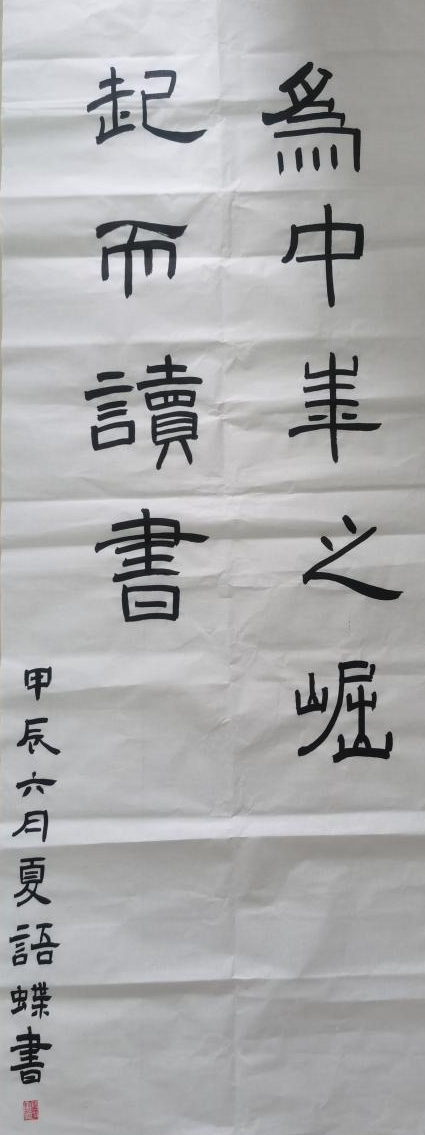 為中華之崛
起而讀書
甲辰六月夏語蝶書